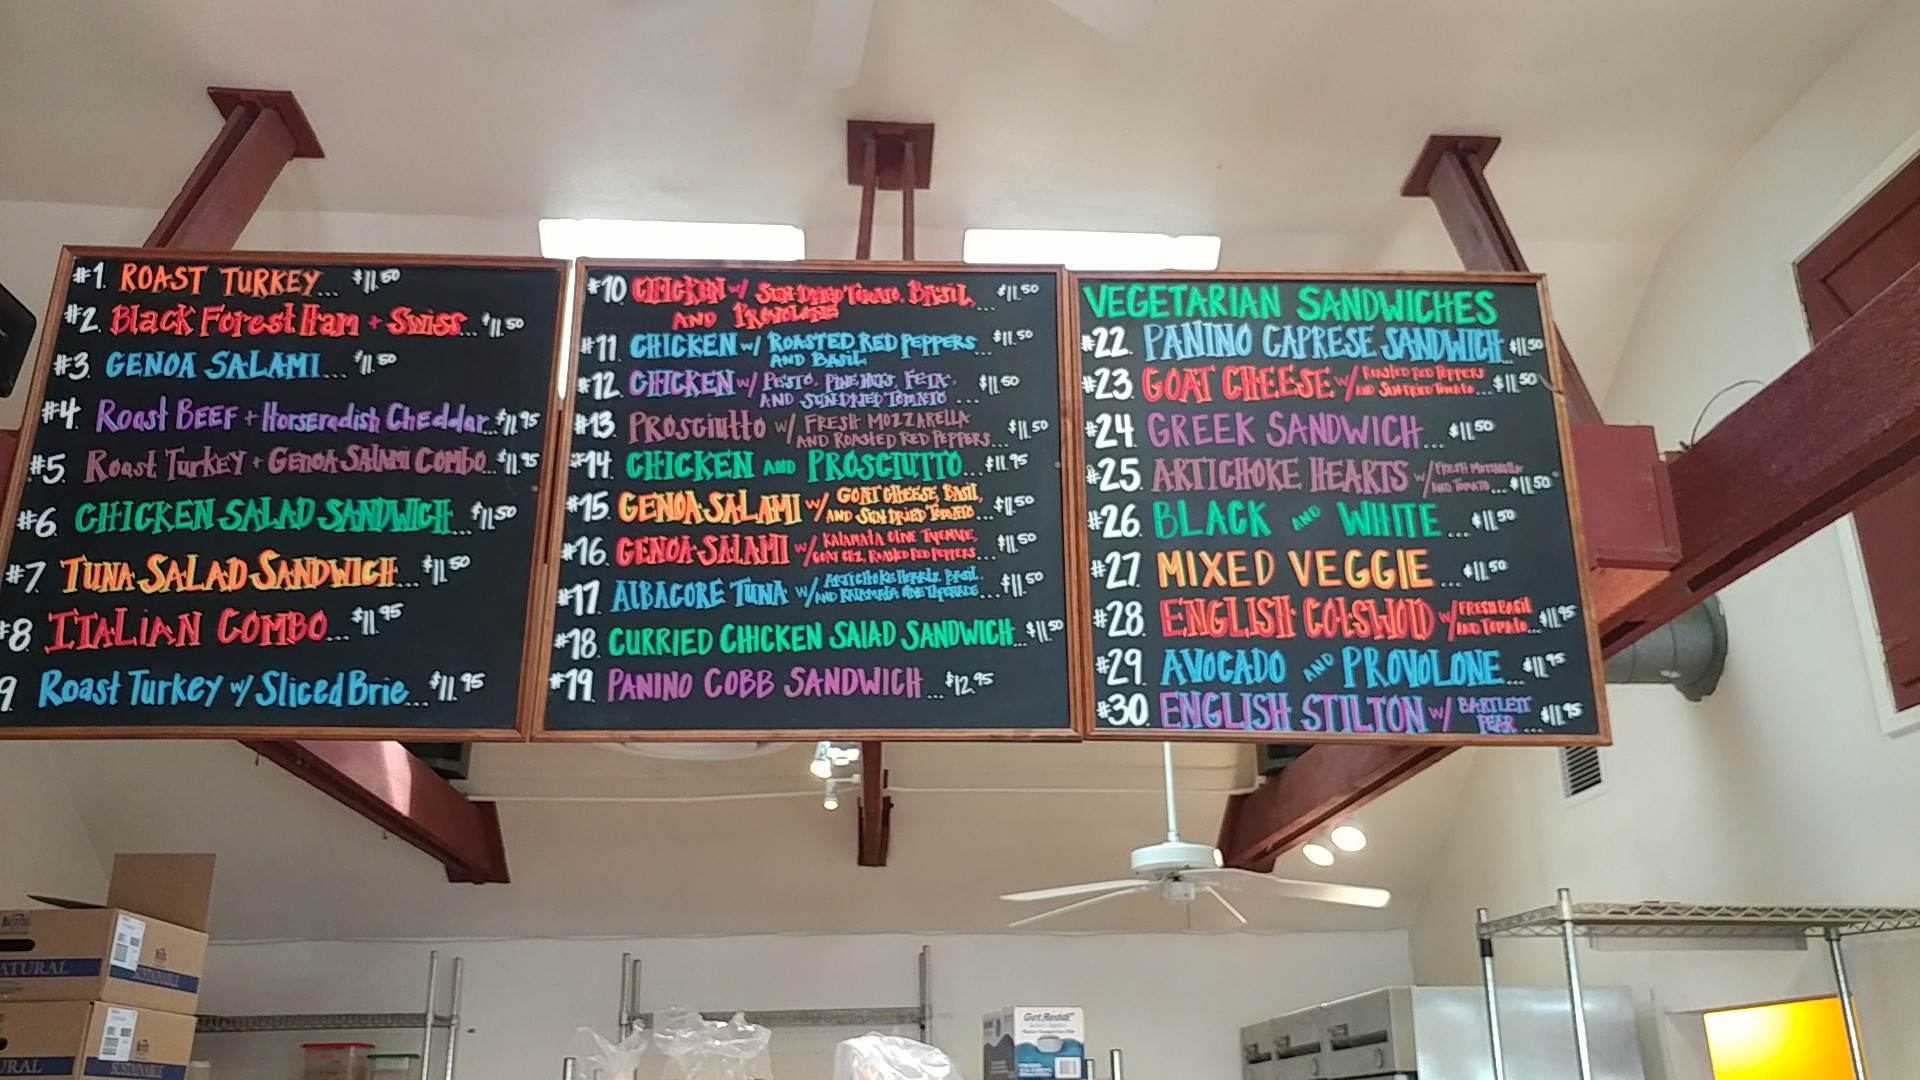 #1. ROAST TURKEY... $11.50
#2. Black Forest Ham + Swiss... $11.50
#3. GENOA SALAMI... $11.50
#4 Roast BEEF + Horseradish Cheddar... $11.95
#5. Roast Turkey + GENOA SALAMI COMBO... $11.95
#6. CHICKEN SALAD SANDWICH... $11.50
#7. TUNA SALAD SANDWICH... $11.50
#8 ITALIAN COMBO... $11.95
9 Roast Turkey w/ Sliced Brie... $11.95
#10 CHICKEN w/ SUN-DRIED TOMATO, BASIL, ... $11.50
AND PROVOLONE
#11. CHICKEN w/ ROASTED RED PEPPERS ... $11.50
AND BASIL
#12. CHICKEN w/ PESTO, PINE NUTS, FETA, ... $11.50
AND SUNDRIED TOMATO
#13. PROSCIUTTO w/ FRESH MOZZARELLA
AND ROASTED RED PEPPERS... $11.50
#14. CHICKEN AND PROSCIUTTO... $11.95
#15. GENOA SALAMI w/ GOAT CHEESE, BASIL,
AND SUN DRIED TOMATO... $11.50
#16. GENOA SALAMI w/ KALAMATA OLIVE TAPENADE,
GOAT CHZ, ROASTED RED PEPPERS... $11.50
#17. ALBACORE TUNA w/ ARTICHOKE HEARTS, BASIL,
AND KALAMATA OLIVE TAPENADE... $11.50
#18. CURRIED CHICKEN SALAD SANDWICH... $11.50
#19. PANINO COBB SANDWICH ... $12.95
VEGETARIAN SANDWICHES
#22. PANINO CAPRESE SANDWICH... $11.50
#23. GOAT CHEESE w/ ROASTED RED PEPPERS
AND SUNDRIED TOMATO... $11.50
#24. GREEK SANDWICH... $11.50
#25. ARTICHOKE HEARTS w/ FRESH MOZZARELLA
AND TOMATO... $11.50
#26. BLACK AND WHITE... $11.50
#27. MIXED VEGGIE ... $11.50
#28. ENGLISH COTSWOLD w/ FRESH BASIL
AND TOMATO... $11.95
#29. AVOCADO AND PROVOLONE... $11.95
#30. ENGLISH STILTON w/ BARTLETT
PEAR ... $11.95
ATURAL
SUSTAINABLE
URAL
SUSTAINABLE
Get Reddi